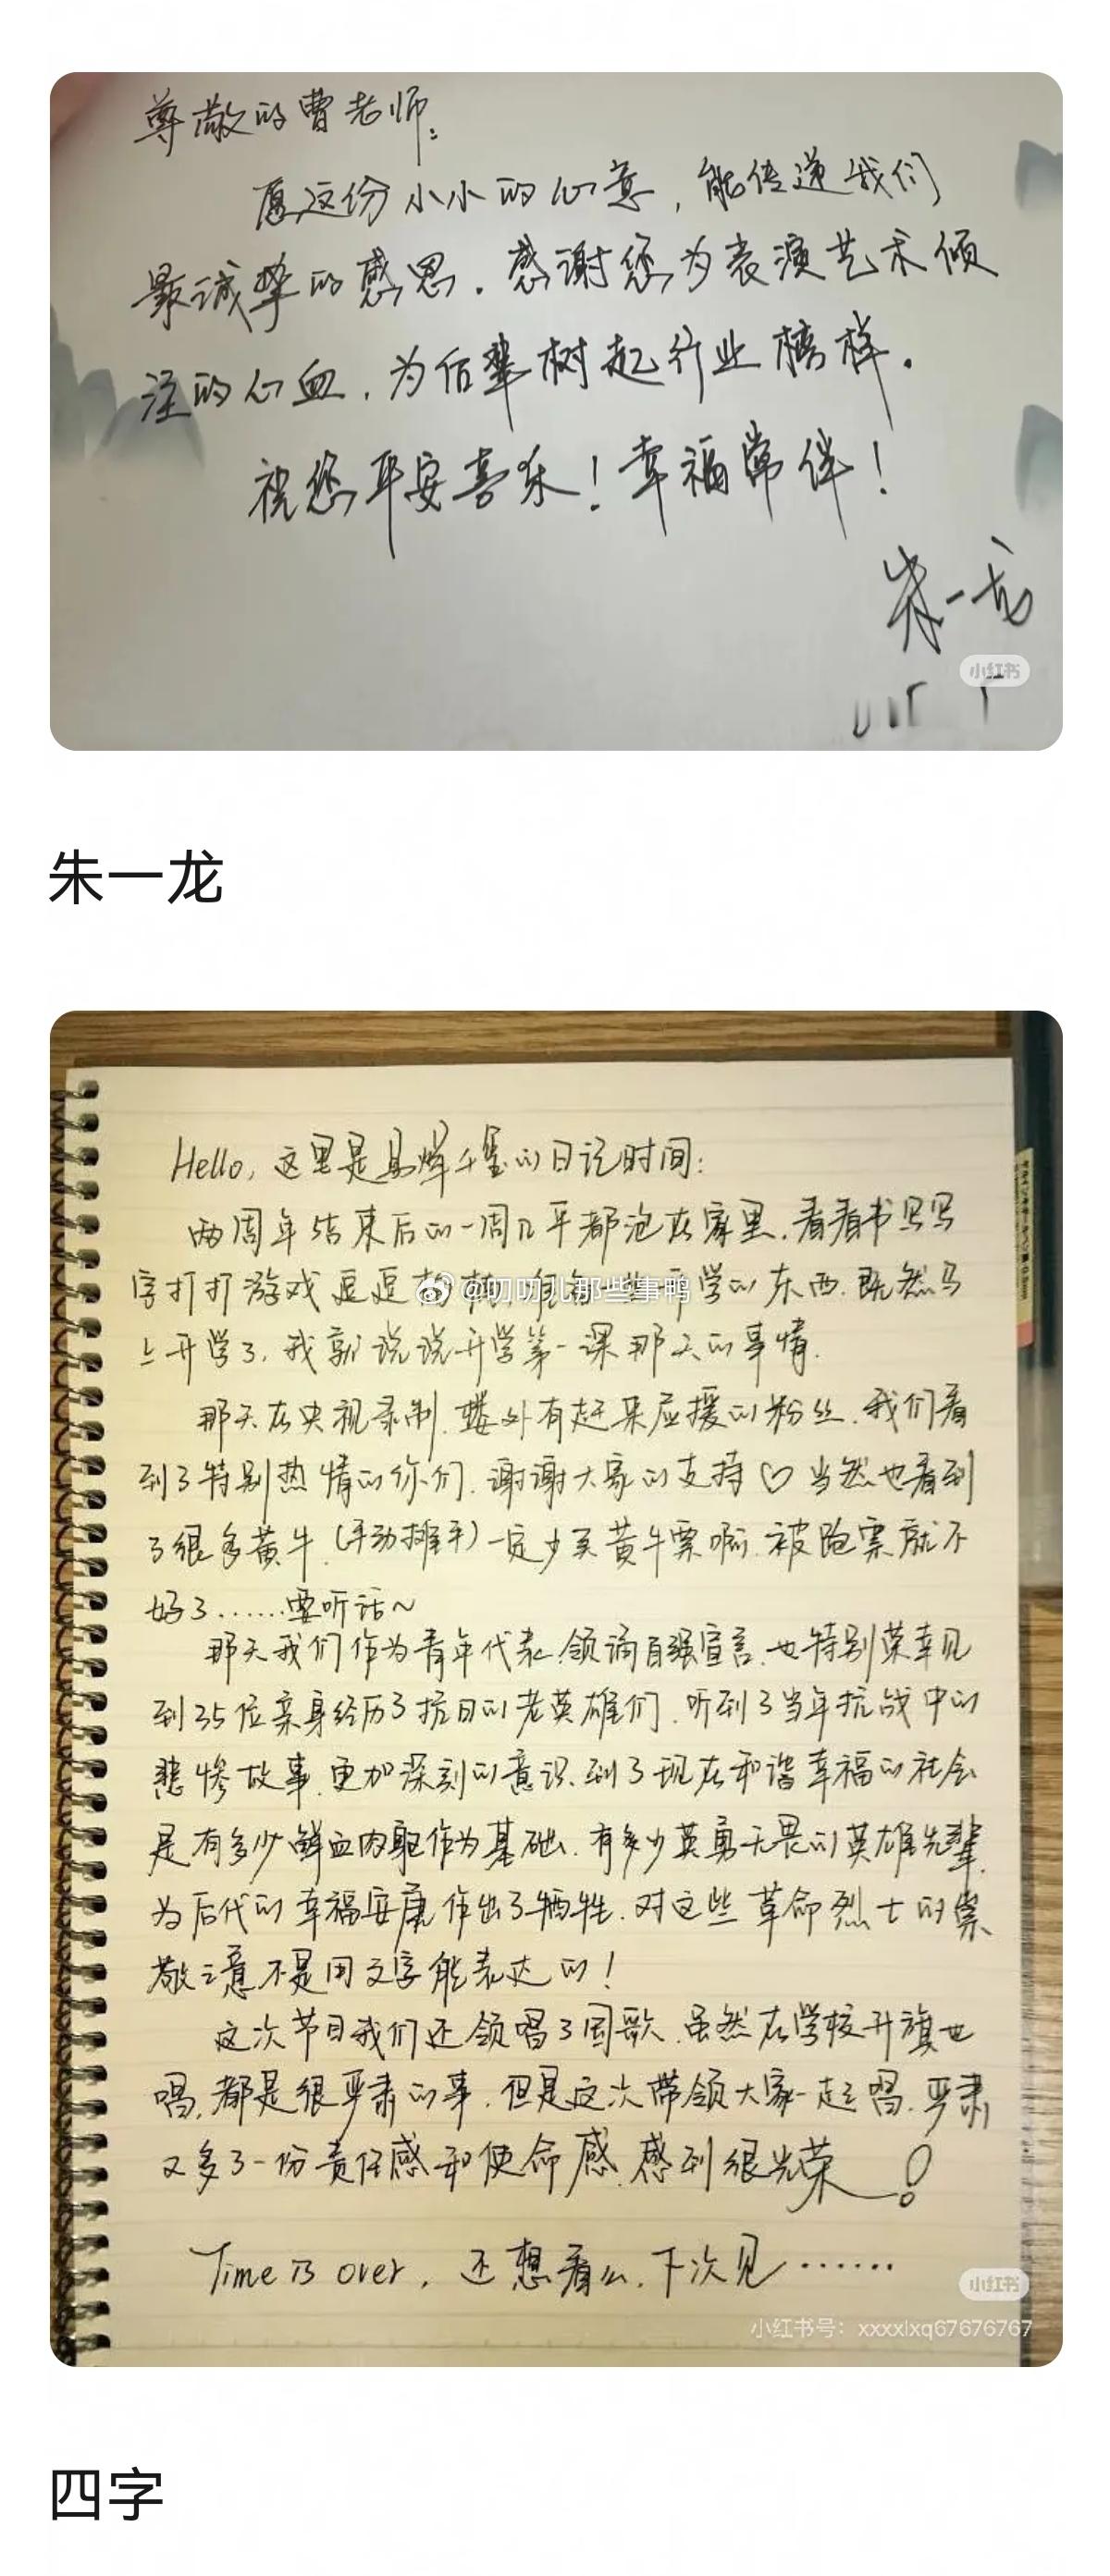 尊敬的曹老师:
愿这份小小的心意,能传递我们
最诚挚的感恩。感谢您为表演艺术倾
注的心血,为后辈树起行业榜样。
祝您平安喜乐!幸福常伴!
朱一龙
小红书
朱一龙
Hello, 这里是易烊千玺的日记时间:
两周年结束后的一周几乎都泡在家里.看看书写写
字打打游戏逗逗
@叨叨儿那些事鸭
学的东西.既然马
上开学了.我就说说开学第一课那天的事情.
那天在央视录制.楼外有赶来应援的粉丝.我们看
到了特别热情的你们.谢谢大家的支持♡当然也看到
了很多黄牛.(手动摊手)一定少买黄牛票啊.被跑票就不
好了……要听话~
那天我们作为青年代表.领诵自强宣言.也特别荣幸见
到35位亲身经历了抗日的老英雄们.听到了当年抗战中的
悲惨故事.更加深刻的意识到了现在和谐幸福的社会
是有多少鲜血肉躯作为基础.有多少英勇无畏的英雄先辈.
为后代的幸福安康作出了牺牲.对这些革命烈士的崇
敬之意不是用文字能表达的!
这次节目我们还领唱了国歌.虽然在学校升旗也
唱.都是很严肃的事.但是这次带领大家一起唱.严肃
又多了一份责任感和使命感.感到很光荣!
Time is over, 还想看么.下次见……
小红书
小红书号: xxxxlxq67676767
四字